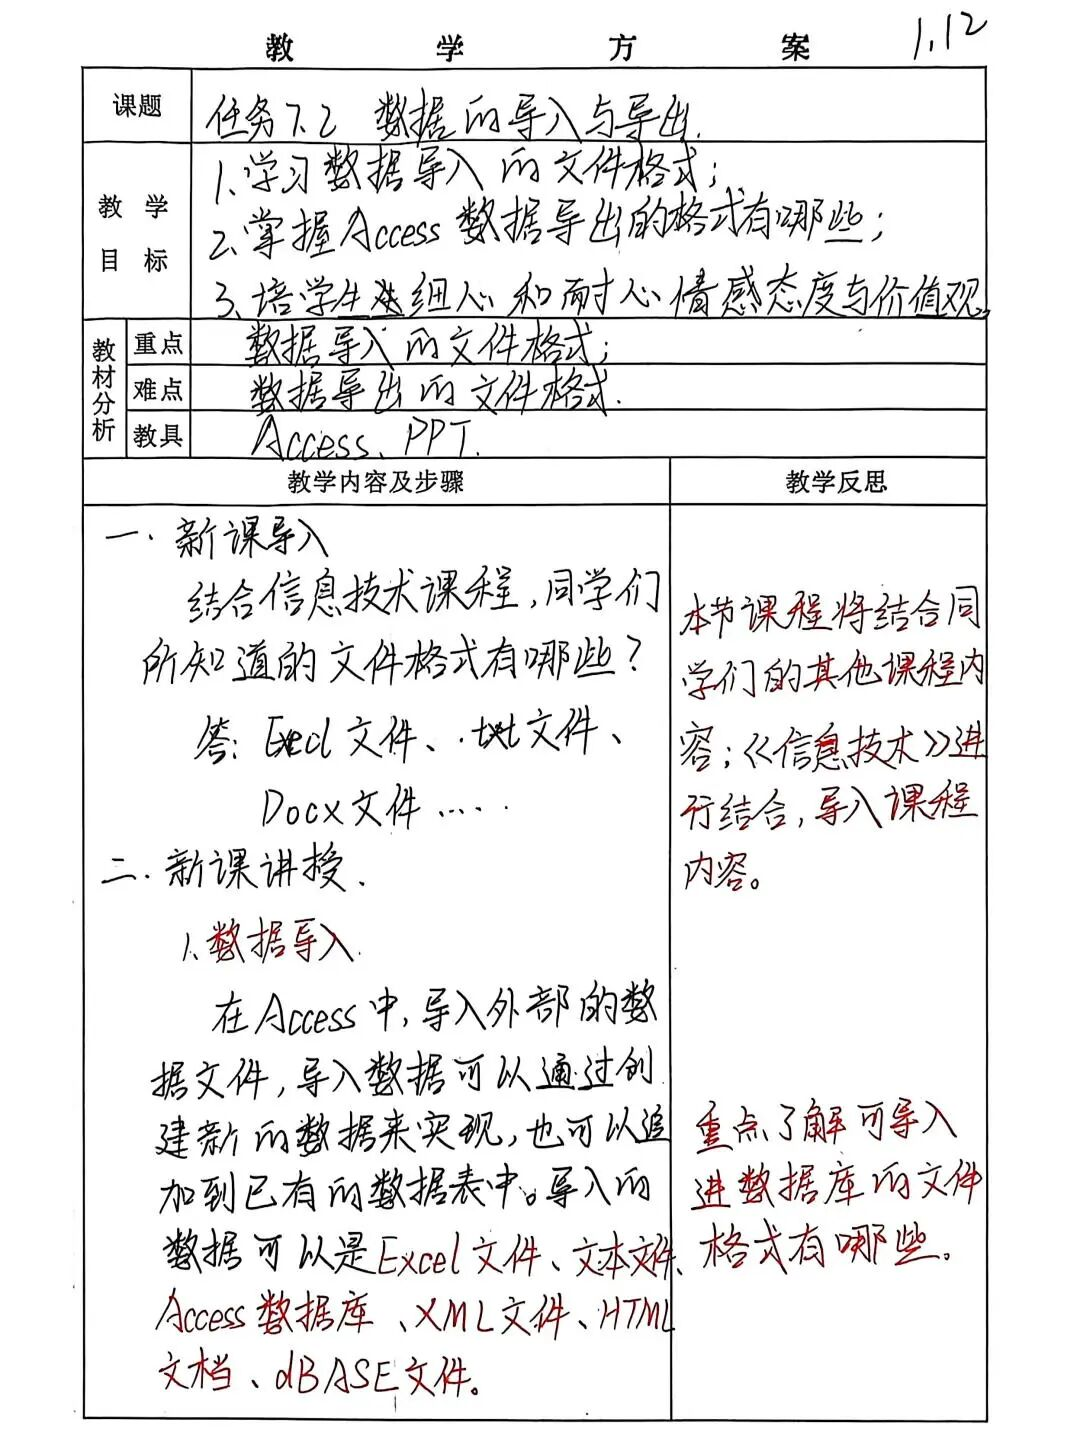 教 学 方 案
1.12
课题 任务7.2 数据的导入与导出.
教 学 目 标
1.学习数据导入的文件格式;
2.掌握Access数据导出的格式有哪些;
3.培学生达细心和耐心情感态度与价值观。
教材分析
重点 数据导入的文件格式;
难点 数据导出的文件格式.
教具 Access、PPT.
教学内容及步骤
一.新课导入
结合信息技术课程,同学们
所知道的文件格式有哪些?
答: Execl文件、.txt文件、
Docx文件.....
二.新课讲授.
1.数据导入.
在Access中,导入外部的数
据文件,导入数据可以通过创
建新的数据来实现,也可以追
加到已有的数据表中。导入的
数据可以是Excel文件、文本文件、
Access数据库、XML文件、HTML
文档、dBASE文件。
教学反思
本节课程将结合同
学们的其他课程内
容;《信息技术》进
行结合,导入课程
内容。
重点了解可导入
进数据库的文件
格式有哪些。